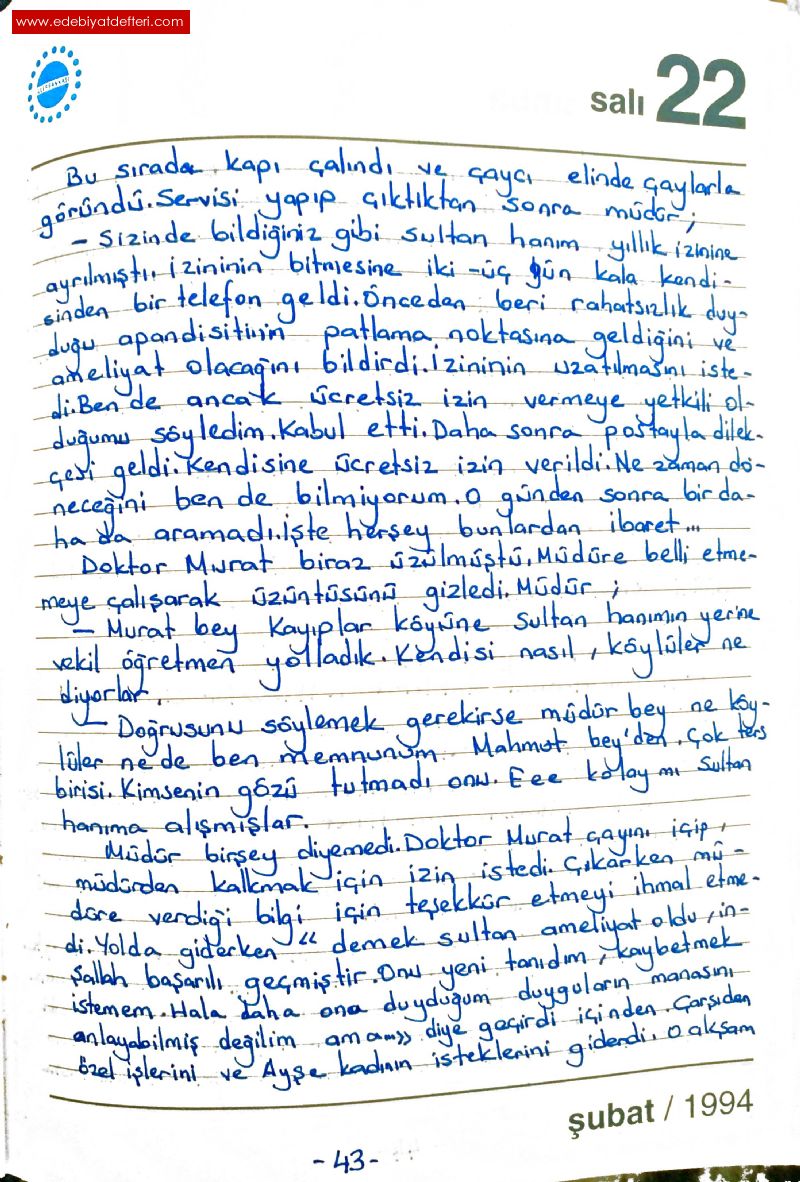 www.edebiyatdefteri.com
salı 22
Bu sırada kapı çalındı ve çaycı elinde çaylarla
göründü. Servisi yapıp çıktıktan sonra müdür;
- Sizinde bildiğiniz gibi sultan hanım yıllık izinine
ayrılmıştı. İzininin bitmesine iki-üç gün kala kendi-
sinden bir telefon geldi. Önceden beri rahatsızlık duy-
duğu apandisitinin patlama noktasına geldiğini ve
ameliyat olacağını bildirdi. İzininin uzatılmasını iste-
di. Ben de ancak ücretsiz izin vermeye yetkili ol-
duğumu söyledim. Kabul etti. Daha sonra postayla dilek-
çesi geldi. Kendisine ücretsiz izin verildi. Ne zaman dö-
neceğini ben de bilmiyorum. O günden sonra bir da-
ha da aramadı. İşte herşey bunlardan ibaret...
Doktor Murat biraz üzülmüştü. Müdüre belli etme-
meye çalışarak üzüntüsünü gizledi. Müdür;
- Murat bey Kayıplar köyüne Sultan hanımın yerine
vekil öğretmen yolladık. Kendisi nasıl, köylüler ne
diyorlar.
- Doğrusunu söylemek gerekirse müdür bey ne köy-
lüler ne de ben memnunum Mahmut bey'den. Çok ters
birisi. Kimsenin gözü tutmadı onu. Eee kolay mı Sultan
hanıma alışmışlar.
Müdür birşey diyemedi. Doktor Murat çayını içip,
müdürden kalkmak için izin istedi. Çıkarken mü-
düre verdiği bilgi için teşekkür etmeyi ihmal etme-
di. Yolda giderken "demek sultan ameliyat oldu, in-
şallah başarılı geçmiştir. Onu yeni tanıdım, kaybetmek
istemem. Hala daha ona duyduğum duyguların manasını
anlayabilmiş değilim ama..." diye geçirdi içinden. Çarşıdan
özel işlerini ve Ayşe kadının isteklerini giderdi. O akşam
şubat / 1994
- 43 -